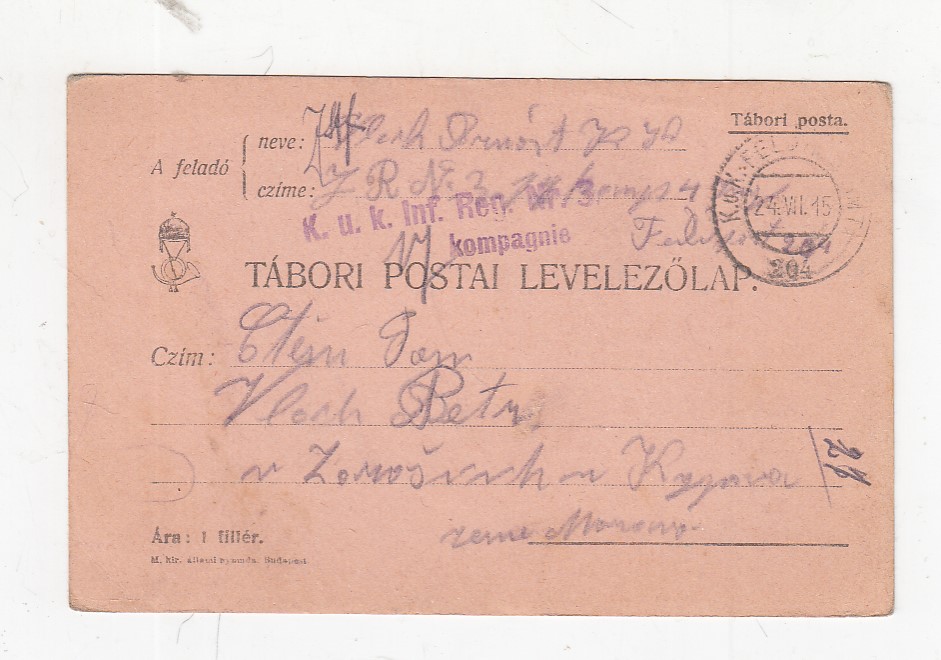 Tábori posta.
A feladó
neve: Vlach Arnošt
címe: I R N. 3
K. u. k. Inf. Reg. Nr. 3
kompagnie
204
K.u.K. FELDPOSTAMT
24.VII.15
204
TÁBORI POSTAI LEVELEZŐLAP.
Czím: Ctěný Pan
Vlach Petr
v u Kyjova
Morava
21
Ára: 1 fillér.
M. kir. állami nyomda. Budapest